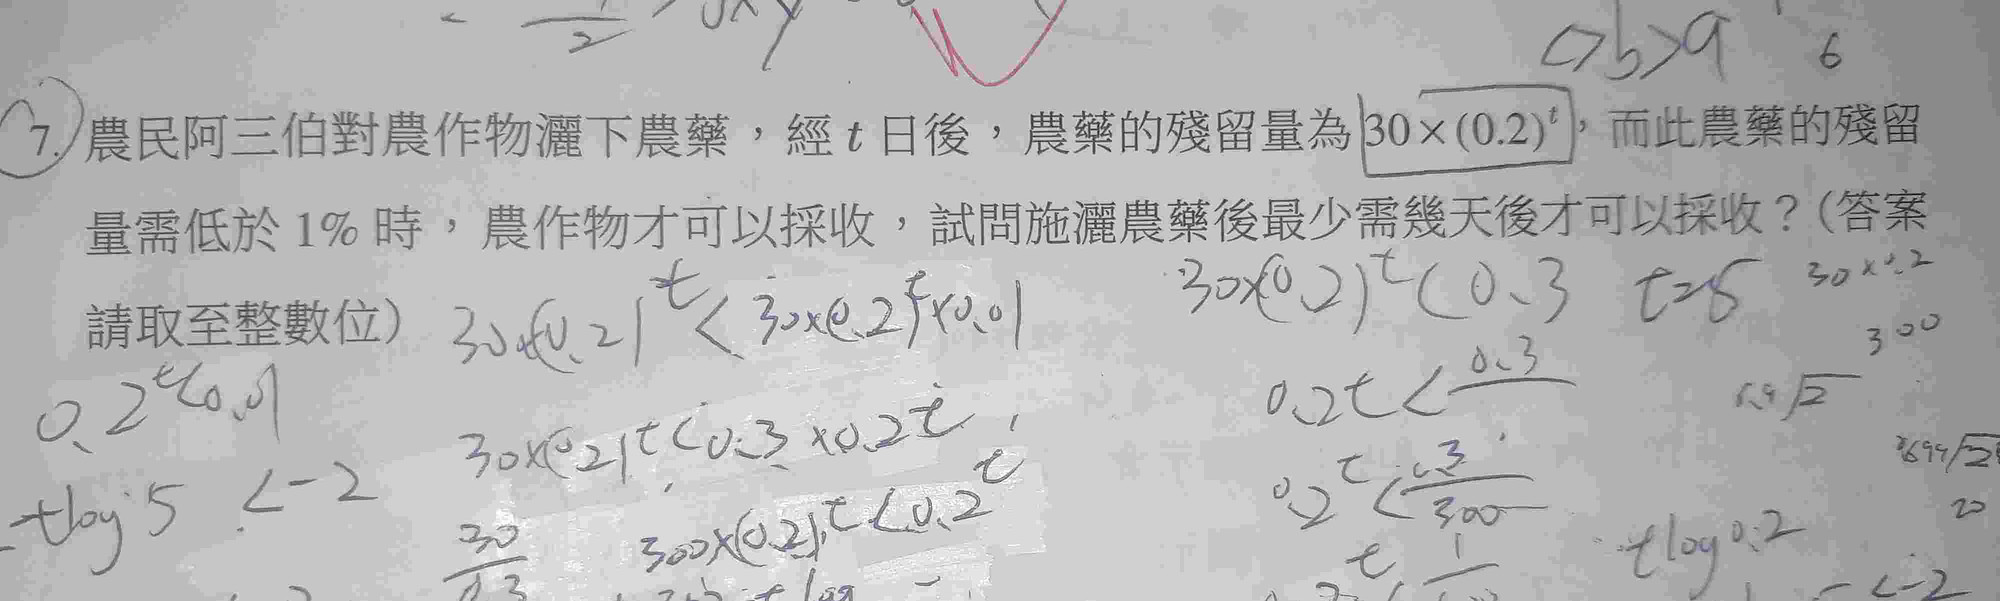 c>b>a 6
7. 農民阿三伯對農作物灑下農藥，經 t 日後，農藥的殘留量為 30×(0.2)^t，而此農藥的殘留
量需低於 1% 時，農作物才可以採收，試問施灑農藥後最少需幾天後才可以採收？(答案
請取至整數位)
30×(0.2)^t < 30×(0.2)^t×0.01
30×(0.2)^t < 0.3 t=5
300
0.2^t<0.01
0.2t < 0.3
30×(0.2)^t<0.3×0.2^t
-tlog5 < -2
300×(0.2)^t<0.2^t
0.2^t < 0.3/300
tlog0.2
20
<-2